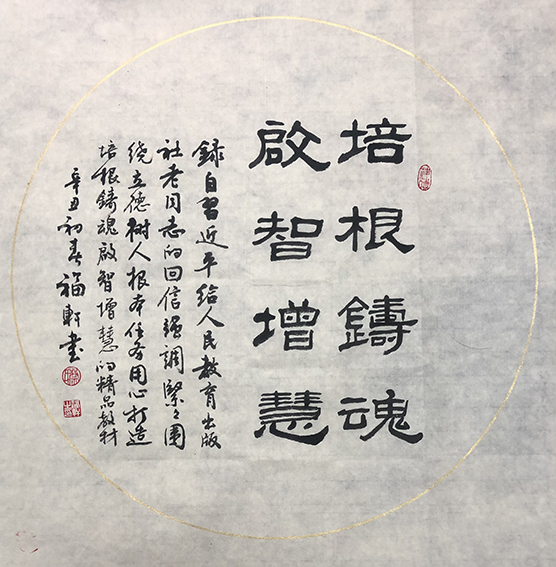 培根鑄魂
啟智增慧
錄自習近平給人民教育出版
社老同志的回信强調緊々圍
绕立德樹人根本任务用心打造
培根鑄魂啟智增慧的精品教材
辛丑初春福軒書